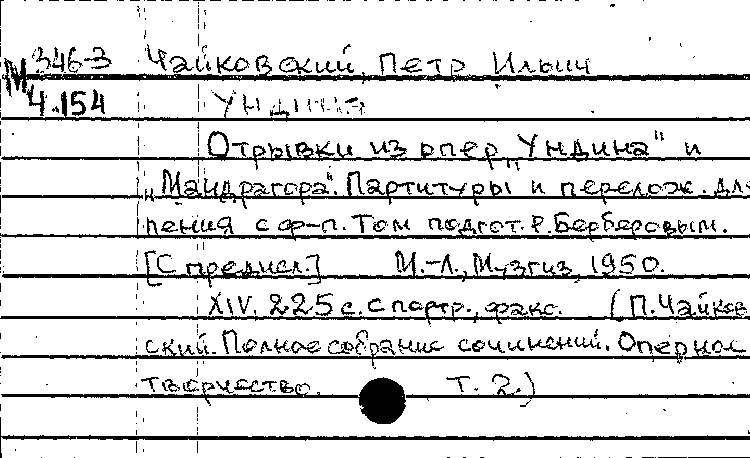 М 346-3 Чайковский, Петр Ильич
4.154 Ундина
Отрывки из опер „Ундина" и
„Мандрагора". Партитуры и перелож. для
пения с ф-п. Том подгот. Р. Берберовым.
[С предисл.] М.-Л., Музгиз, 1950.
XIV, 225 с. с портр., факс. (П. Чайков
ский. Полное собрание сочинений. Оперное
творчество. Т. 2.)